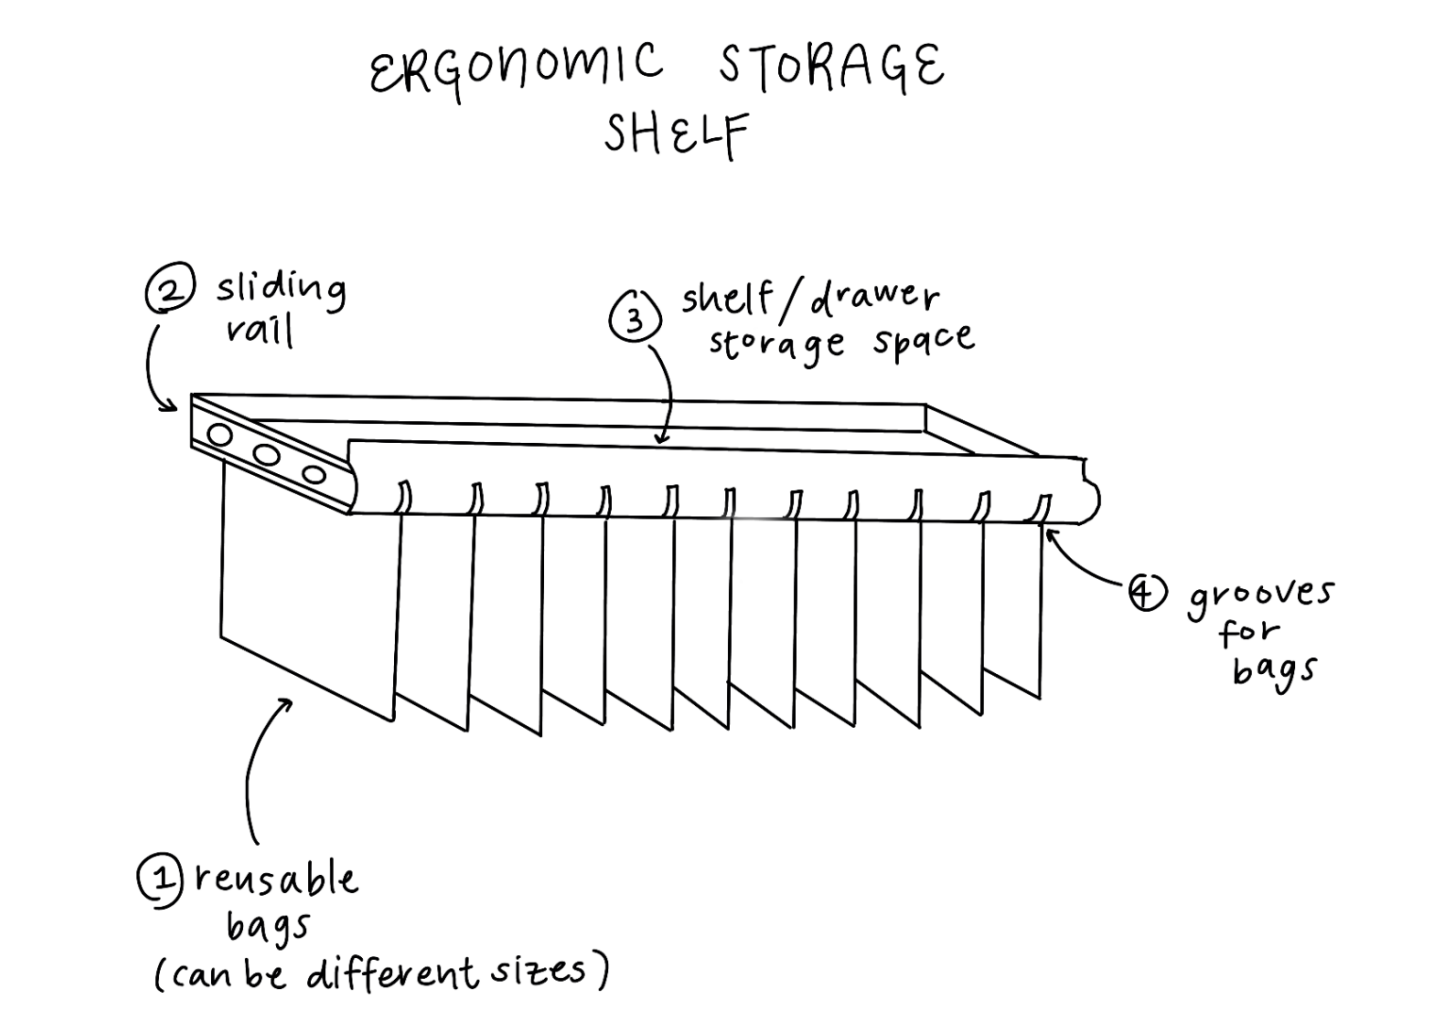 ERGONOMIC STORAGE
SHELF
2 sliding
rail
3 shelf/drawer
storage space
4 grooves
for
bags
1 reusable
bags
(can be different sizes)